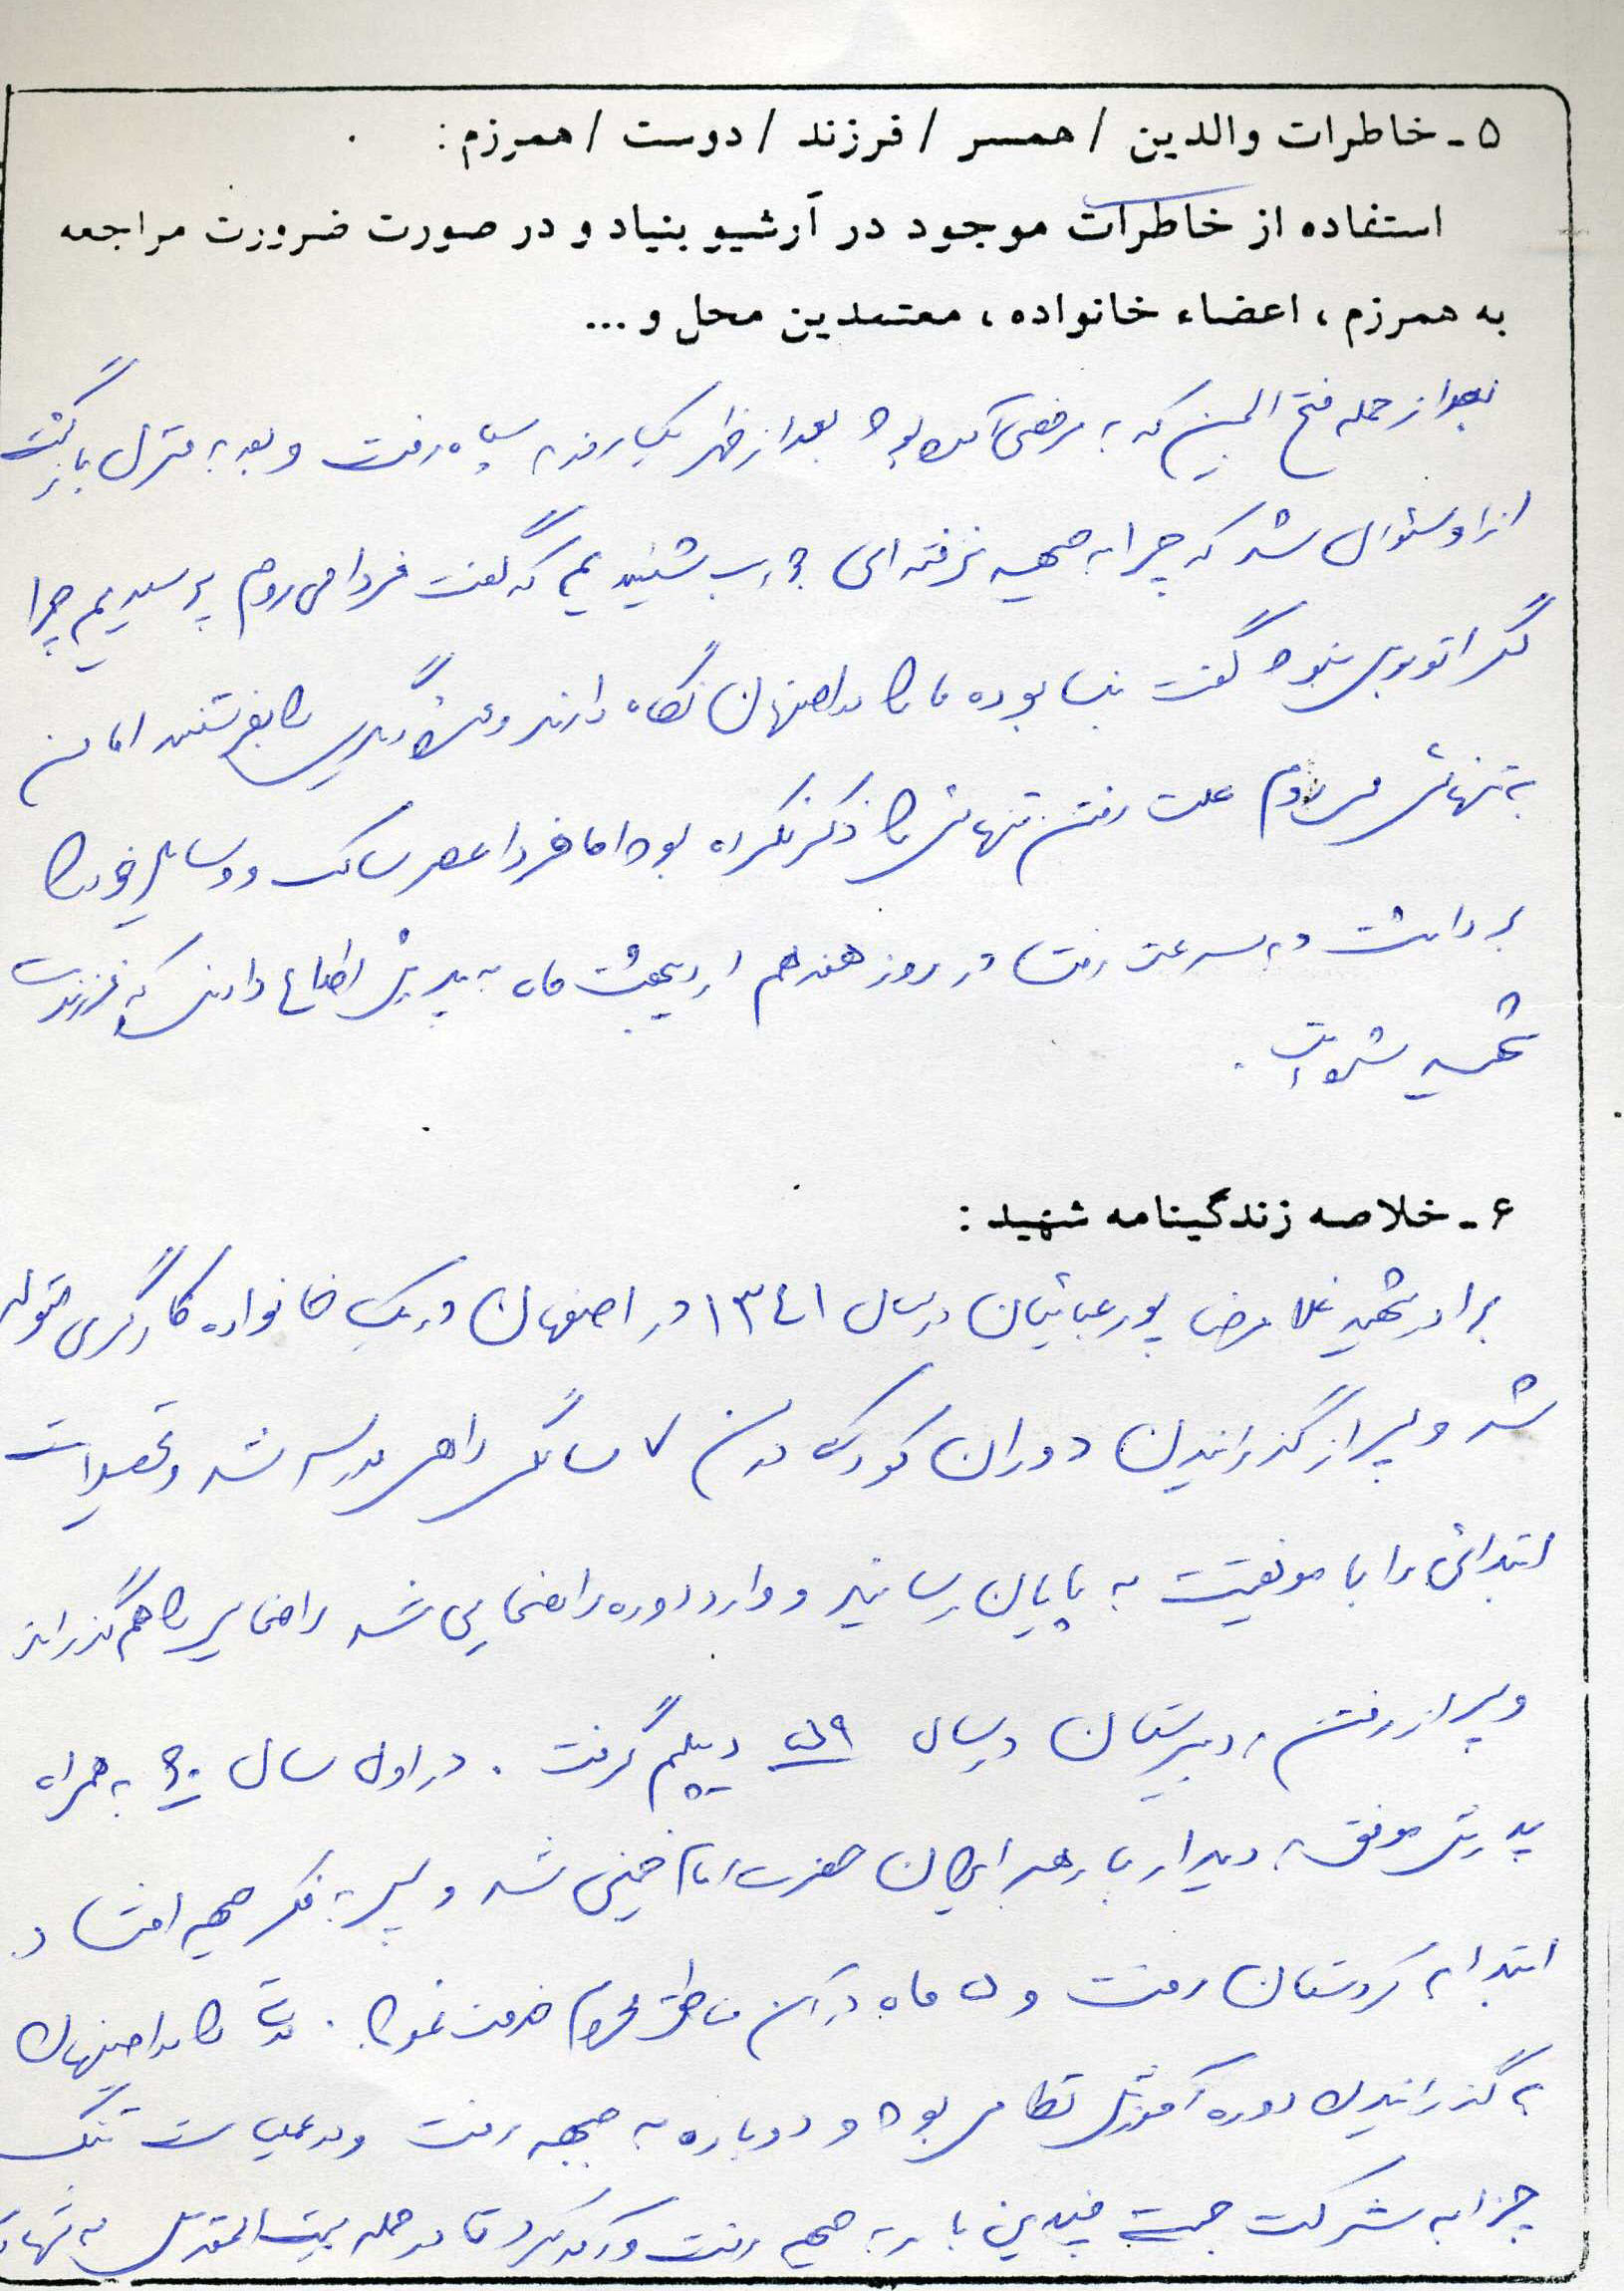 ۵ - خاطرات والدین / همسر / فرزند / دوست / همرزم :
استفاده از خاطرات موجود در آرشیو بنیاد و در صورت ضرورت مراجعه
به همرزم ، اعضاء خانواده ، معتمدین محل و ...
بعد از حمله فتح المبین که به مرخصی آمده بود بعد از ظهر یک روز به سپاه رفت و بعد به منزل بازگشت
از او سئوال شد که چرا به جبهه نرفته ای جواب شنیدیم که گفت فردا می روم پرسیدیم چرا
مگر اتوبوس نبود گفت بنا بوده ما را در اصفهان نگاه دارند و عده دیگری را بفرستند اما من
به تنهائی می روم علت رفتن تنهائی را ذکر نکرده بود اما فردا عصر ساک و وسایل خود را
برداشت و به سرعت رفت در روز هفدهم اردیبهشت ماه به پدرش اطلاع دادند که فرزندت
شهید شده است .
۶ - خلاصه زندگینامه شهید :
برادر شهید غلامرضا پورعباسیان در سال ۱۳۴۱ در اصفهان در یک خانواده کارگری متولد
شد و پس از گذراندن دوران کودکی در سن ۷ سالگی راهی مدرسه شد و تحصیلات
ابتدائی را با موفقیت به پایان رسانید و وارد دوره راهنمایی شد راهنمایی را هم گذراند
و پس از رفتن به دبیرستان در سال ۵۹ دیپلم گرفت . در اول سال ۶۰ به همراه
پدرش موفق به دیدار با رهبر ایران حضرت امام خمینی شد و پس به فکر جبهه افتاد و
ابتدا به کردستان رفت و ۵ ماه در آن مناطق محروم خدمت نمود . مدتی را در اصفهان
به گذراندن دوره آموزش نظامی بود و دوباره به جبهه رفت و در عملیات تنگ
چزابه شرکت جست چندین بار به جبهه رفت و آمد کرد تا در حمله بیت المقدس به شهادت